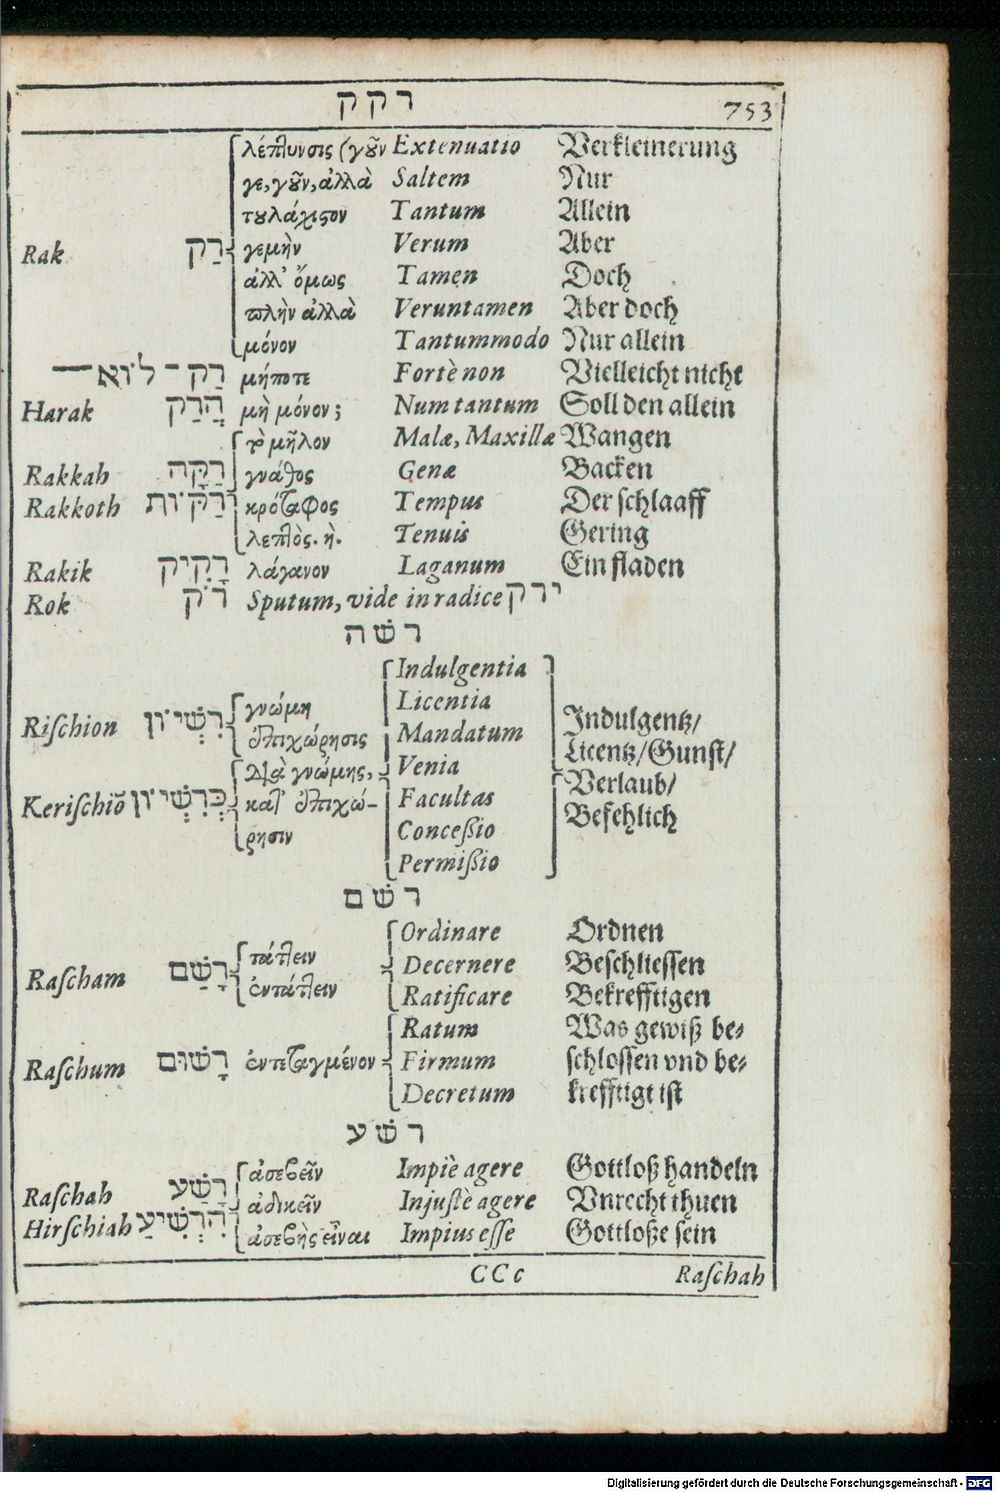 רקק 753
λέπτυνσις (γοῦν Extenuatio Verkleinerung
γε, γοῦν, ἀλλὰ Saltem Nur
τοὐλάχιστον Tantum Allein
Rak רַק γεμὴν Verum Aber
ἀλλ' ὅμως Tamen Doch
πλὴν ἀλλὰ Veruntamen Aber doch
μόνον Tantummodo Nur allein
רַק־לוֹא— μήποτε Fortè non Vielleicht nicht
Harak הֲרַק μὴ μόνον; Num tantum Soll den allein
τὸ μῆλον Malæ, Maxillæ Wangen
Rakkah רַקָּה γνάθος Genæ Backen
Rakkoth רַקּוֹת κρόταφος Tempus Der schlaaff
λεπτὸς. ὴ. Tenuis Gering
Rakik רָקִיק λάγανον Laganum Ein fladen
Rok רֹק Sputum, vide in radice ירק
רשׁה
Indulgentia
Licentia
Rischion רִשְׁיוֹן γνώμη Mandatum Indulgentz/
ἐπιχώρησις Venia Licentz/Gunst/
Kerischiõ כְּרִשְׁיוֹן διὰ γνώμης, Facultas Verlaub/
κατ' ἐπιχώ- Concessio Befehlich
ρησιν Permissio
רשׁם
Ordinare Ordnen
Rascham רָשַׁם τάττειν Decernere Beschliessen
ἐντάττειν Ratificare Bekrefftigen
Ratum Was gewiß be-
Raschum רָשׁוּם ἐντεταγμένον Firmum schlossen vnd be-
Decretum krefftigt ist
רשׁע
ἀσεβεῖν Impiè agere Gottloß handeln
Raschah רָשַׁע ἀδικεῖν Injustè agere Vnrecht thuen
Hirschiah הִרְשִׁיעַ ἀσεβὴς εἶναι Impius esse Gottloße sein
CCc Raschah
Digitalisierung gefördert durch die Deutsche Forschungsgemeinschaft - DFG